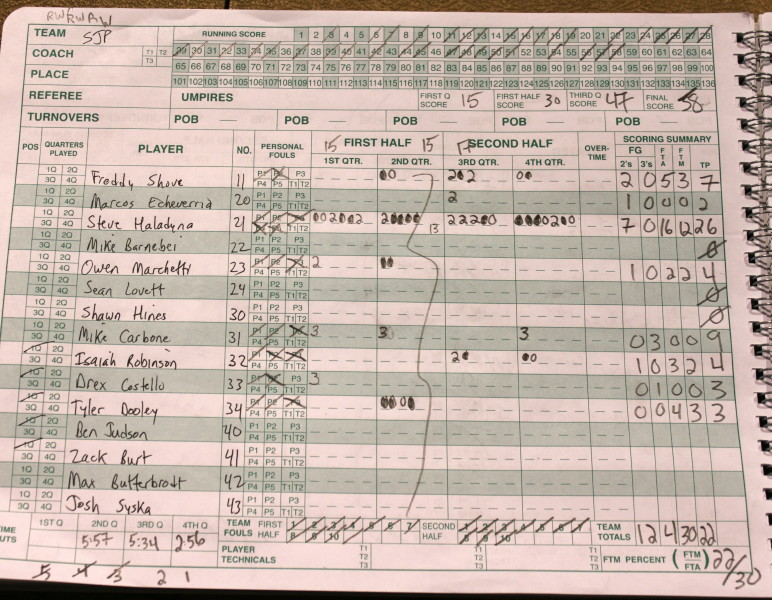 TEAM SJP RUNNING SCORE 1 2 3 4 5 6 7 8 9 10 11 12 13 14 15 16 17 18 19 20 21 22 23 24 25 26 27 28
COACH T1 T2 T3 29 30 31 32 33 34 35 36 37 38 39 40 41 42 43 44 45 46 47 48 49 50 51 52 53 54 55 56 57 58 59 60 61 62 63 64
65 66 67 68 69 70 71 72 73 74 75 76 77 78 79 80 81 82 83 84 85 86 87 88 89 90 91 92 93 94 95 96 97 98 99 100
PLACE 101 102 103 104 105 106 107 108 109 110 111 112 113 114 115 116 117 118 119 120 121 122 123 124 125 126 127 128 129 130 131 132 133 134 135 136
REFEREE UMPIRES FIRST Q SCORE 15 FIRST HALF SCORE 30 THIRD Q SCORE 47 FINAL SCORE 58
TURNOVERS POB — POB — POB — POB — POB
POS QUARTERS PLAYED PLAYER NO. PERSONAL FOULS 15 FIRST HALF 15 17 SECOND HALF OVER-TIME SCORING SUMMARY
1ST QTR. 2ND QTR. 3RD QTR. 4TH QTR. FG 2's 3's FTA FTM TP
1Q 2Q 3Q 4Q Freddy Shove 11 P1 P2 P3 P4 P5 T1 T2 2 0 5 3 7
1Q 2Q 3Q 4Q Marcos Echeverria 20 P1 P2 P3 P4 P5 T1 T2 2 1 0 0 0 2
1Q 2Q 3Q 4Q Steve Haladyna 21 P1 P2 P3 P4 P5 T1 T2 13 7 0 16 12 26
1Q 2Q 3Q 4Q Mike Barnebei 22 P1 P2 P3 P4 P5 T1 T2 0
1Q 2Q 3Q 4Q Owen Marchetti 23 P1 P2 P3 P4 P5 T1 T2 2 1 0 2 2 4
1Q 2Q 3Q 4Q Sean Lovett 24 P1 P2 P3 P4 P5 T1 T2 0
1Q 2Q 3Q 4Q Shawn Hines 30 P1 P2 P3 P4 P5 T1 T2 0
1Q 2Q 3Q 4Q Mike Carbone 31 P1 P2 P3 P4 P5 T1 T2 3 3 3 0 3 0 0 9
1Q 2Q 3Q 4Q Isaiah Robinson 32 P1 P2 P3 P4 P5 T1 T2 2 1 0 3 2 4
1Q 2Q 3Q 4Q Drex Costello 33 P1 P2 P3 P4 P5 T1 T2 3 0 1 0 0 3
1Q 2Q 3Q 4Q Tyler Dooley 34 P1 P2 P3 P4 P5 T1 T2 0 0 4 3 3
1Q 2Q 3Q 4Q Ben Judson 40 P1 P2 P3 P4 P5 T1 T2
1Q 2Q 3Q 4Q Zack Burt 41 P1 P2 P3 P4 P5 T1 T2
1Q 2Q 3Q 4Q Max Butterbrodt 42 P1 P2 P3 P4 P5 T1 T2
1Q 2Q 3Q 4Q Josh Syska 43 P1 P2 P3 P4 P5 T1 T2
1ST Q 2ND Q 5:57 3RD Q 5:34 4TH Q 2:56 TEAM FOULS FIRST HALF 1 2 3 4 5 6 7 8 9 10 SECOND HALF 1 2 3 4 5 6 7 8 9 10 TEAM TOTALS 12 4 30 22
PLAYER TECHNICALS T1 T2 T3 T1 T2 T3 T1 T2 T3 T1 T2 T3 FTM PERCENT (FTM FTA) 22/30
5 4 3 2 1